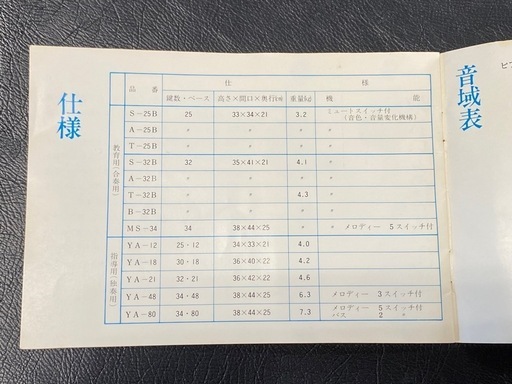 仕様
品番 仕様
鍵数・ベース 高さ×間口×奥行㎝ 重量kg 機能
教育用（合奏用）
S-25B 25 33×34×21 3.2 ミュートスイッチ付
（音色・音量変化機構）
A-25B 〃 〃 〃 〃
T-25B 〃 〃 〃 〃
S-32B 32 35×41×21 4.1 〃
A-32B 〃 〃 〃 〃
T-32B 〃 〃 4.3 〃
B-32B 〃 〃 〃 〃
MS-34 34 38×44×25 〃 〃 メロディー 5スイッチ付
指導用（独奏用）
YA-12 25・12 34×33×21 4.0
YA-18 30・18 36×40×22 4.2
YA-21 32・21 36×42×22 4.6
YA-48 34・48 38×44×25 6.3 メロディー 3スイッチ付
YA-80 34・80 38×44×25 7.3 メロディー 5スイッチ付
バス 2 〃
音域表
ピ